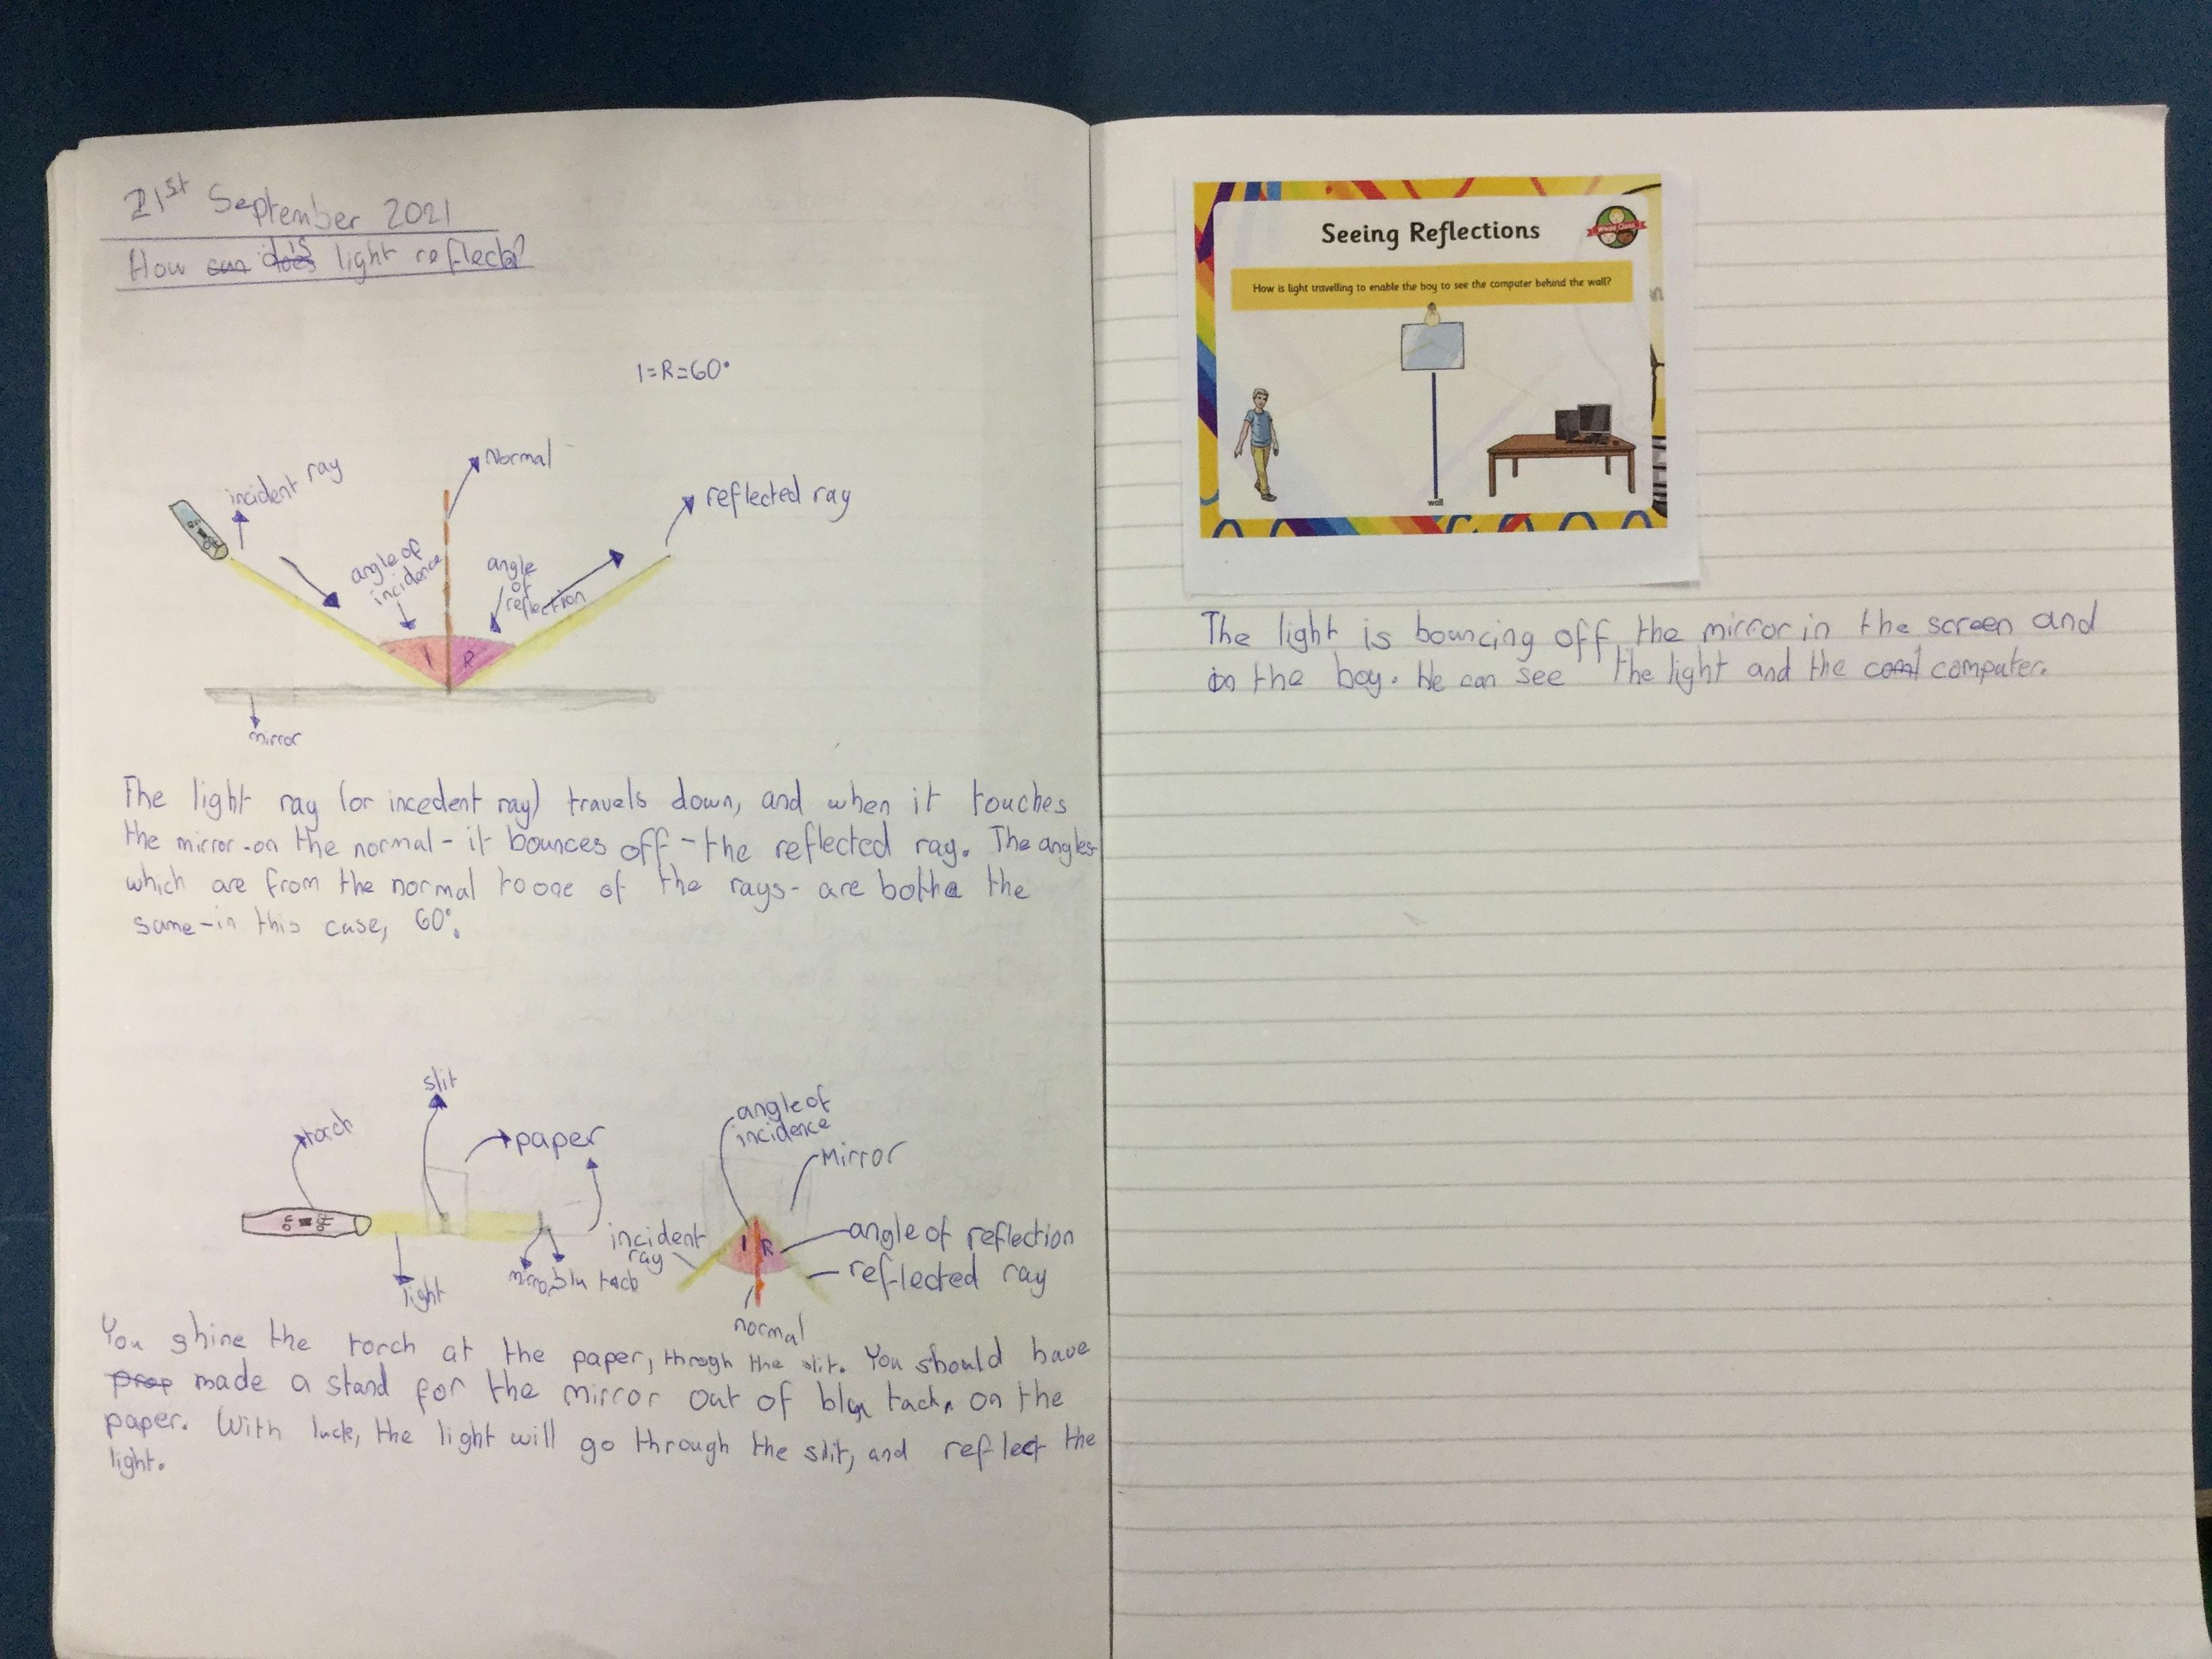 21st September 2021
How can does is light reflect?
I=R=60°
Normal
incident ray
reflected ray
angle of
incidence
angle
of
reflection
I
R
mirror
The light ray (or incedent ray) travels down, and when it touches
the mirror-on the normal- it bounces off - the reflected ray. The angles-
which are from the normal to one of the rays- are both the
same-in this case, 60°.
slit
torch
paper
on off
light
blu tack
angle of
incidence
Mirror
incident
ray
I
R
angle of reflection
reflected ray
normal
You shine the torch at the paper, through the slit. You should have
prop made a stand for the mirror out of blu tack, on the
paper. With luck, the light will go through the slit, and reflect the
light.
Seeing Reflections
Whole Class
How is light travelling to enable the boy to see the computer behind the wall?
wall
The light is bouncing off the mirror in the screen and
on the boy. He can see the light and the computer.